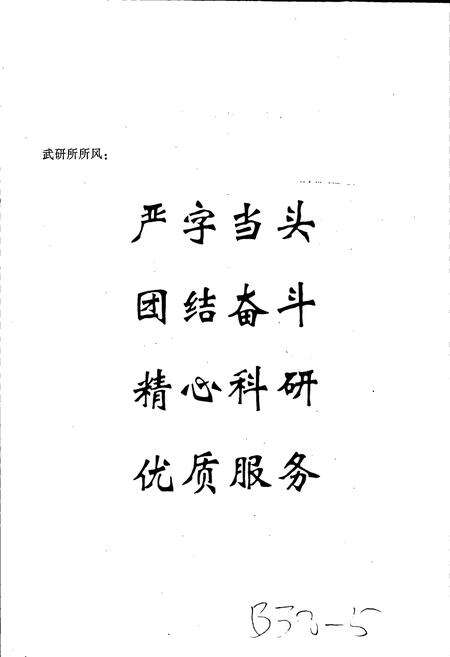 武研所所风：
严字当头
团结奋斗
精心科研
优质服务
B33-5